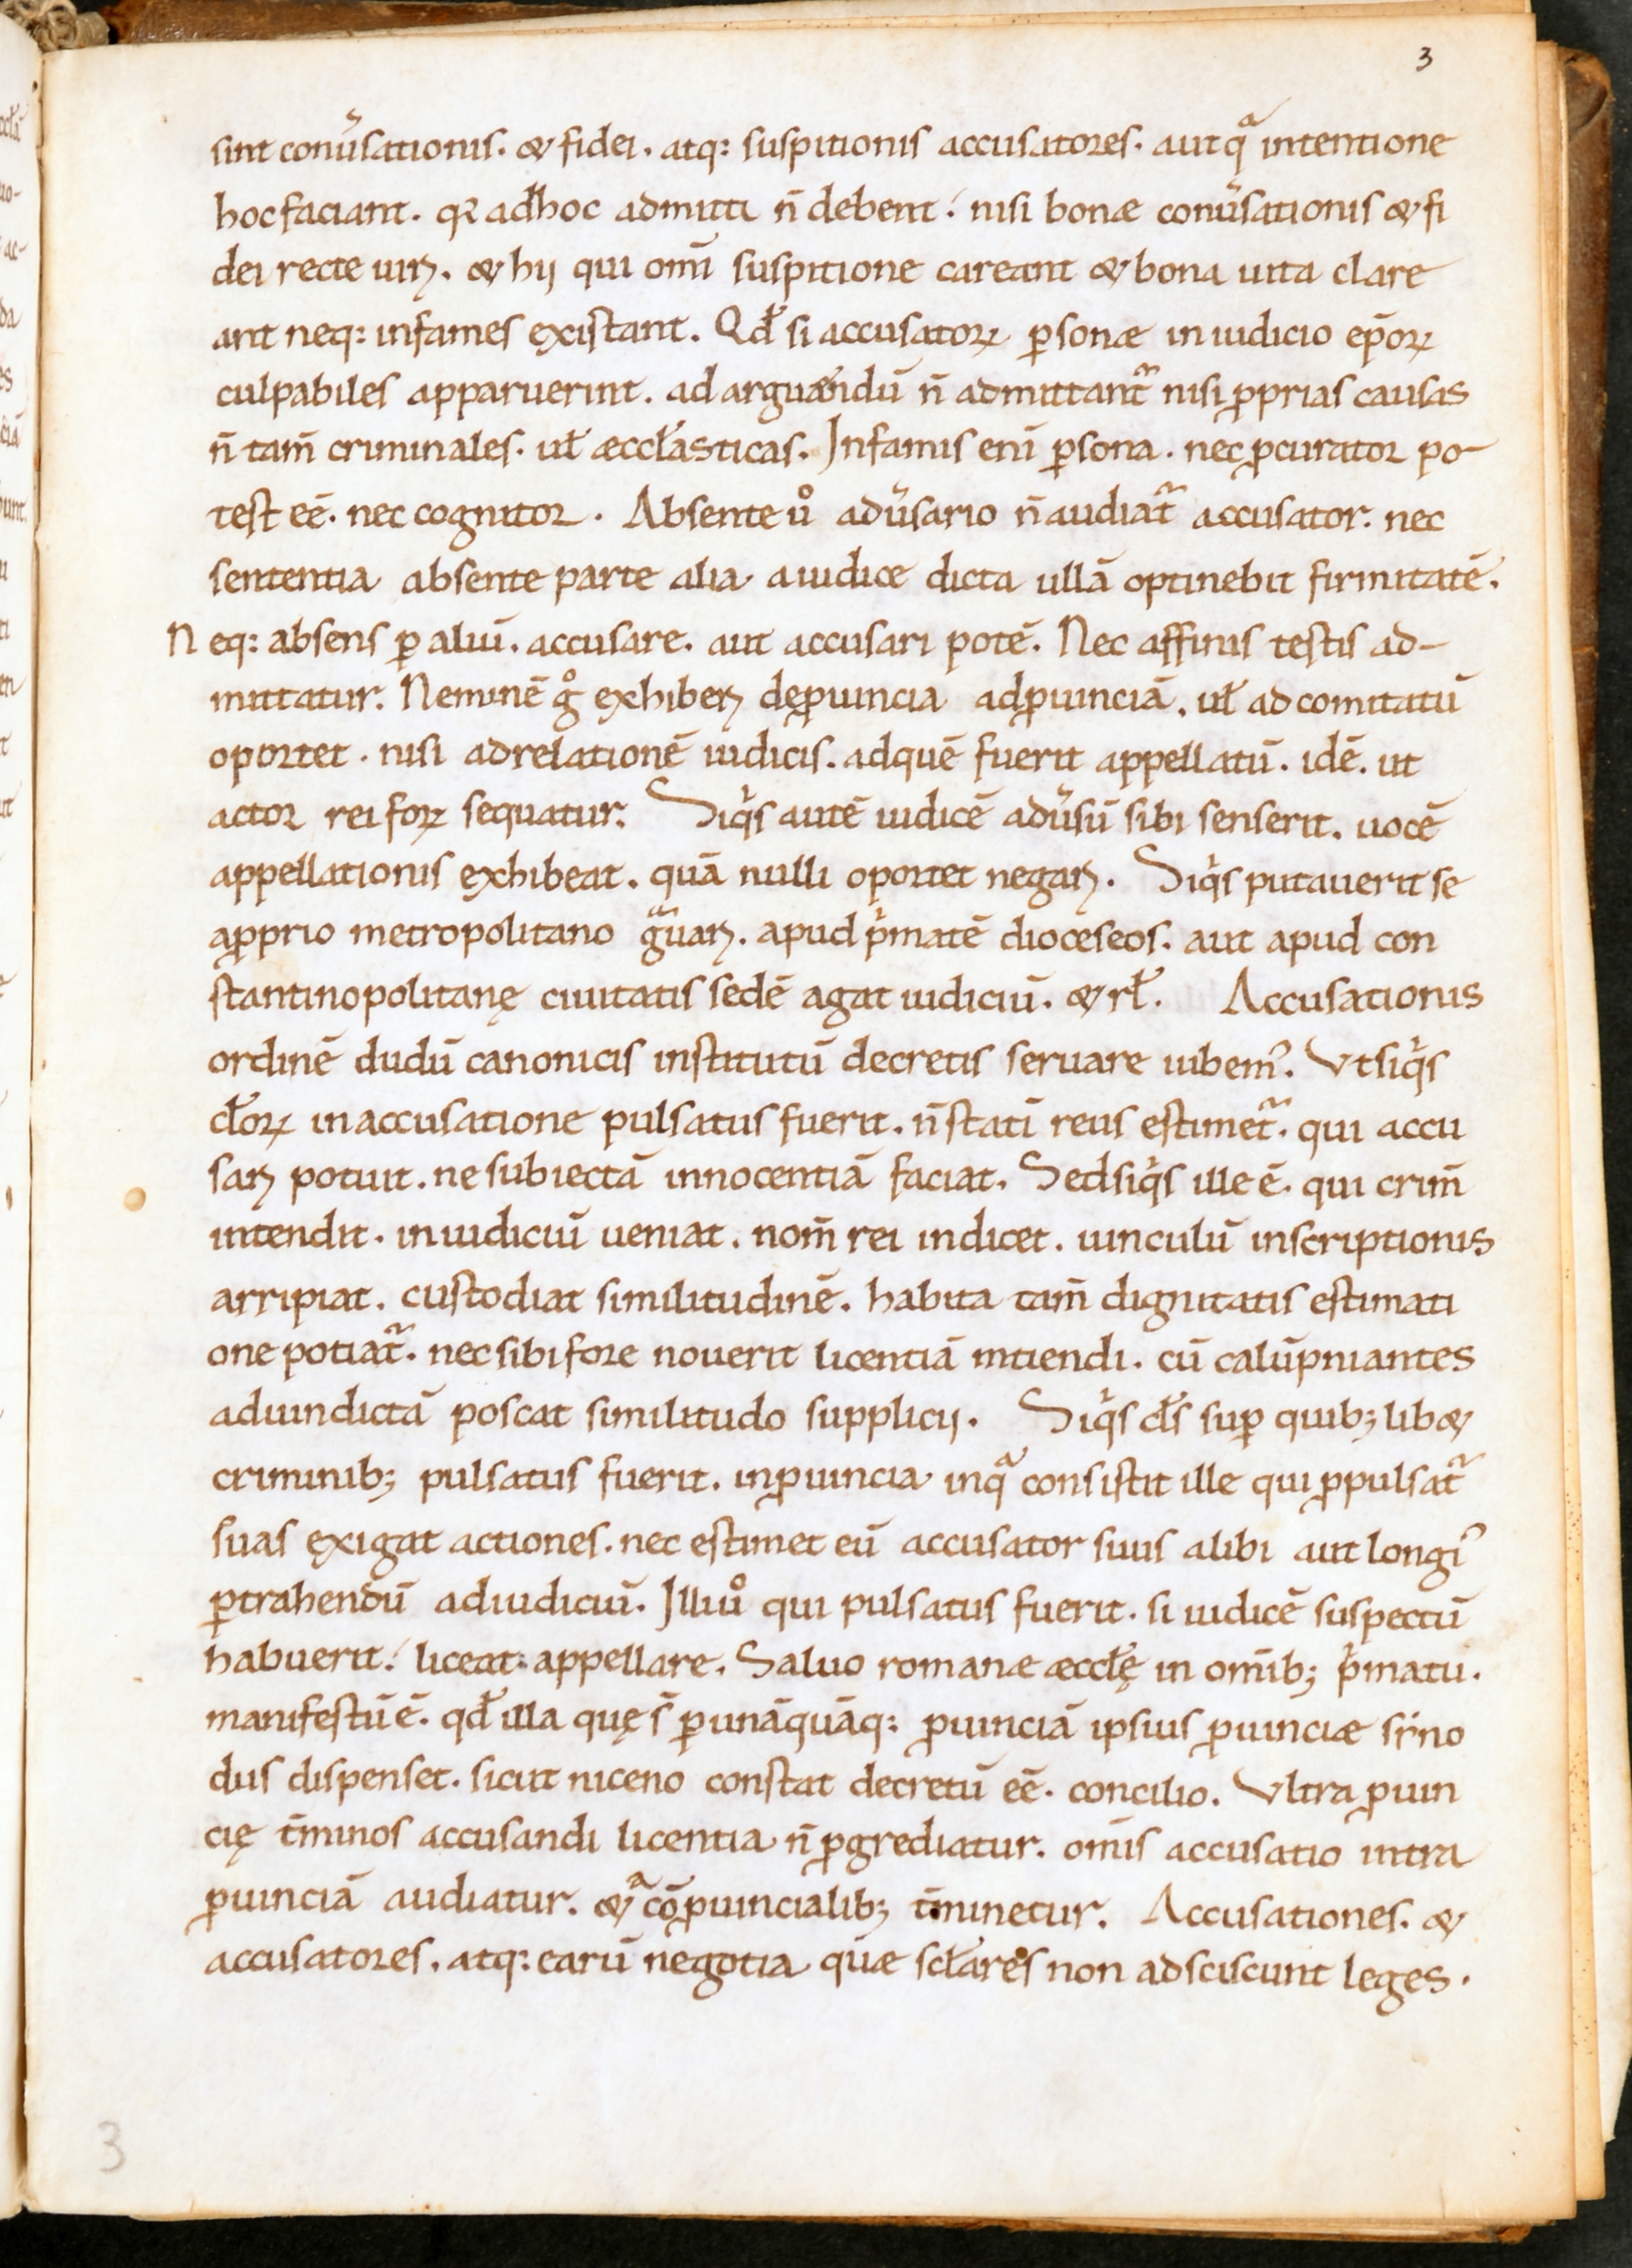 3
sint conũsationis. & fidei. atq: suspitionis accusatores. aut qᵃ intentione
hoc faciant. qꝛ ad hoc admitti n̄ debent. nisi bonæ conũsationis & fi
dei recte uirꝫ. & hij qui omĩ suspitione careant & bona uita clare
ant neq: infames existant. Qđ si accusatoꝝ ꝑsonæ in iudicio ep̄oꝝ
culpabiles apparuerint. ad arguændū n̄ admittant᷑ nisi ꝓprias causas
n̄ tam̄ criminales. uł æccłasticas. Infamis enĩ ꝑsona. nec ꝓcurator po-
test eē. nec cognitor. Absente uͦ adũsario n̄ audiat᷑ accusator. nec
sententia absente parte alia a iudice dicta ullā optinebit firmitatē.
Neq: absens ꝑ aliū. accusare. aut accusari potē. Nec affinis testis ad-
mittatur. Neminē gͦ exhiberꝫ de ꝓuincia ad ꝓuinciā. uł ad comitatū
oportet. nisi ad relationē iudicis. ad quē fuerit appellatū. idē. ut
actor rei foꝝ sequatur. Siqͥs autē iudicē adũsū sibi senserit. uocē
appellationis exhibeat. quā nulli oportet negarꝫ. Siqͥs putauerit se
a ꝓprio metropolitano gᵃuarꝫ. apud pͥmatē dioceseos. aut apud con
stantinopolitanę ciuitatis sedē agat iudiciū. & rł. Accusationis
ordinē dudū canonicis institutū decretis seruare iubem᾽. Vt siqͥs
cłoꝝ in accusatione pulsatus fuerit. n̄ statĩ reus estimet᷑. qui accu
sarꝫ potuit. ne subiectā innocentiā faciat. Sed siqͥs ille ē. qui crim̄
intendit. in iudiciū ueniat. nom̄ rei indicet. uinculū inscriptionis
arripiat. custodiat similitudinē. habita tam̄ dignitatis estimati
one potiat᷑. nec sibi fore nouerit licentiā mtiendi. cū calūpniantes
ad uindictā poscat similitudo supplicij. Siqͥs cłs suꝑ quibꝫ lib&
criminibꝫ pulsatus fuerit. in ꝓuincia in qᵃ consistit ille qui ꝓpulsat᷑
suas exigat actiones. nec estimet eū accusator suus alibi aut longi᾽
ꝑtrahendū ad iudiciū. Illi uͦ qui pulsatus fuerit. si iudicē suspectū
habuerit. liceat appellare. Saluo romanæ æccłę in omĩbꝫ pͥmatu.
manifestū ē. qđ illa quę s̄ ꝑ unāquāq: ꝓuinciā ipsius ꝓuinciæ sẏno
dus dispenset. sicut niceno constat decretū eē. concilio. Vltra ꝓuin
cię t̄minos accusandi licentia n̄ ꝓgrediatur. omĩs accusatio intra
ꝓuinciā audiatur. & ᵃ cō ꝓuincialibꝫ t̄minetur. Accusationes. &
accusatores. atq: earū negotia quæ scłares non adsciscunt leges.
3